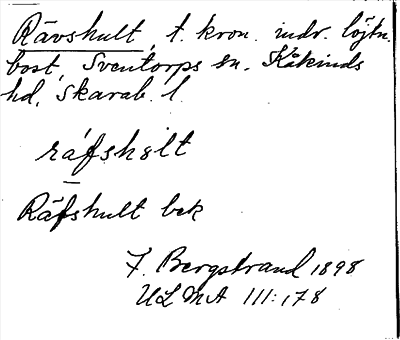 Rävshult, t. kron. indr. löjtn.
bost, Sventorps sn. Kåkinds
hd, Skarab. l.
räfshult
Räfshult bek
F. Bergstrand 1898
ULMA 111:178